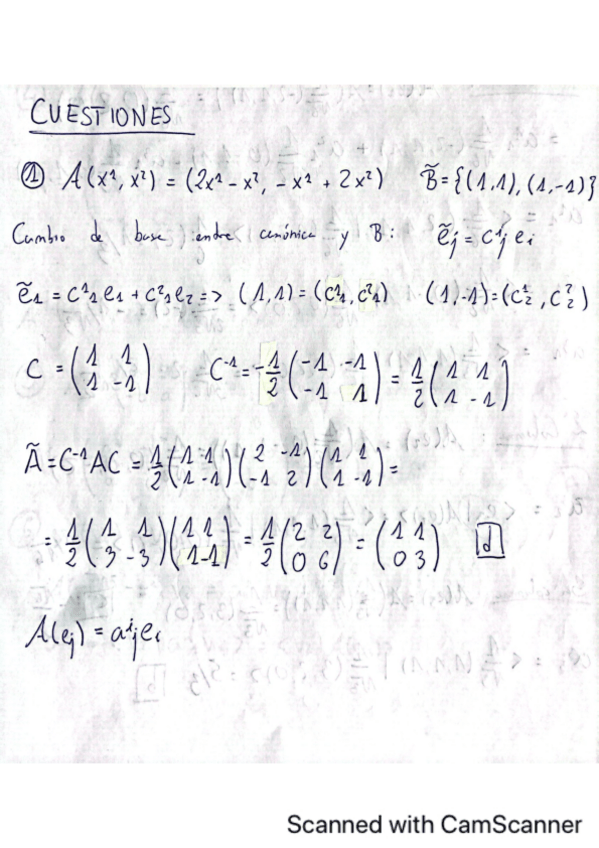 CUESTIONES
① A(x¹, x²) = (2x¹ - x², - x¹ + 2x²) B̃ = {(1,1), (1,-1)}
Cambio de base entre canónica y B: ẽⱼ = cⁱⱼ eᵢ
ẽ₁ = c¹₁ e₁ + c²₁ e₂ => (1,1) = (c¹₁, c²₁) (1,-1) = (c¹₂, c²₂)
C = (1 1; 1 -1) C⁻¹ = -1/2 (-1 -1; -1 1) = 1/2 (1 1; 1 -1)
Ã = C⁻¹AC = 1/2 (1 1; 1 -1) (2 -1; -1 2) (1 1; 1 -1) =
= 1/2 (1 1; 3 -3) (1 1; 1 -1) = 1/2 (2 2; 0 6) = (1 1; 0 3) d
A(eⱼ) = aⁱⱼ eᵢ
Scanned with CamScanner